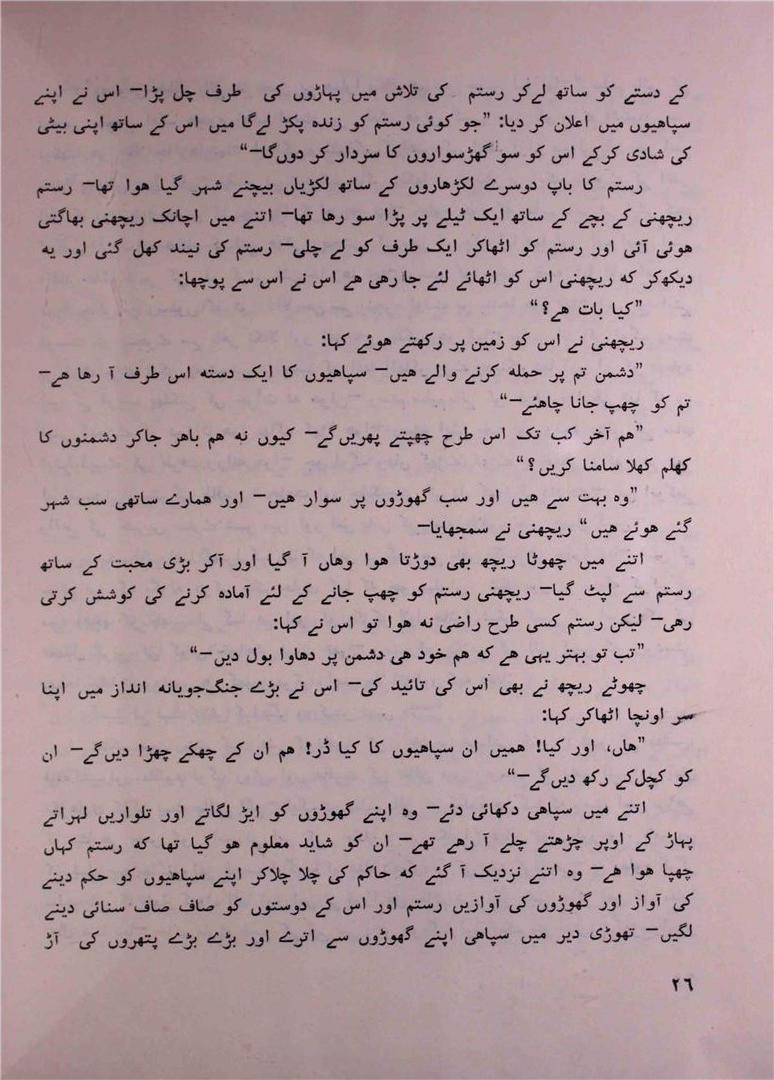 کے دستے کو ساتھ لےکر رستم کی تلاش میں پہاڑوں کی طرف چل پڑا— اس نے اپنے
سپاھیوں میں اعلان کر دیا: ”جو کوئی رستم کو زندہ پکڑ لےگا میں اس کے ساتھ اپنی بیٹی
کی شادی کرکے اس کو سو گھڑسواروں کا سردار کر دوںگا—“
رستم کا باپ دوسرے لکڑھاروں کے ساتھ لکڑیاں بیچنے شہر گیا ھوا تھا— رستم
ریچھنی کے بچے کے ساتھ ایک ٹیلے پر پڑا سو رھا تھا— اتنے میں اچانک ریچھنی بھاگتی
ھوئی آئی اور رستم کو اٹھاکر ایک طرف کو لے چلی— رستم کی نیند کھل گئی اور یہ
دیکھکر کہ ریچھنی اس کو اٹھائے لئے جا رھی ھے اس نے اس سے پوچھا:
”کیا بات ھے؟“
ریچھنی نے اس کو زمین پر رکھتے ھوئے کہا:
”دشمن تم پر حملہ کرنے والے ھیں— سپاھیوں کا ایک دستہ اس طرف آ رھا ھے—
تم کو چھپ جانا چاھئے—“
”ھم آخر کب تک اس طرح چھپتے پھریںگے— کیوں نہ ھم باھر جاکر دشمنوں کا
کھلم کھلا سامنا کریں؟“
”وہ بہت سے ھیں اور سب گھوڑوں پر سوار ھیں— اور ھمارے ساتھی سب شہر
گئے ھوئے ھیں“ ریچھنی نے سمجھایا—
اتنے میں چھوٹا ریچھ بھی دوڑتا ھوا وھاں آ گیا اور آکر بڑی محبت کے ساتھ
رستم سے لپٹ گیا— ریچھنی رستم کو چھپ جانے کے لئے آمادہ کرنے کی کوشش کرتی
رھی— لیکن رستم کسی طرح راضی نہ ھوا تو اس نے کہا:
”تب تو بہتر یہی ھے کہ ھم خود ھی دشمن پر دھاوا بول دیں—“
چھوٹے ریچھ نے بھی اس کی تائید کی— اس نے بڑے جنگجویانہ انداز میں اپنا
سر اونچا اٹھاکر کہا:
”ھاں، اور کیا! ھمیں ان سپاھیوں کا کیا ڈر! ھم ان کے چھکے چھڑا دیںگے— ان
کو کچلکے رکھ دیںگے—“
اتنے میں سپاھی دکھائی دئے— وہ اپنے گھوڑوں کو ایڑ لگاتے اور تلواریں لہراتے
پہاڑ کے اوپر چڑھتے چلے آ رھے تھے— ان کو شاید معلوم ھو گیا تھا کہ رستم کہاں
چھپا ھوا ھے— وہ اتنے نزدیک آ گئے کہ حاکم کی چلا چلاکر اپنے سپاھیوں کو حکم دینے
کی آواز اور گھوڑوں کی آوازیں رستم اور اس کے دوستوں کو صاف صاف سنائی دینے
لگیں— تھوڑی دیر میں سپاھی اپنے گھوڑوں سے اترے اور بڑے بڑے پتھروں کی آڑ
۲۶